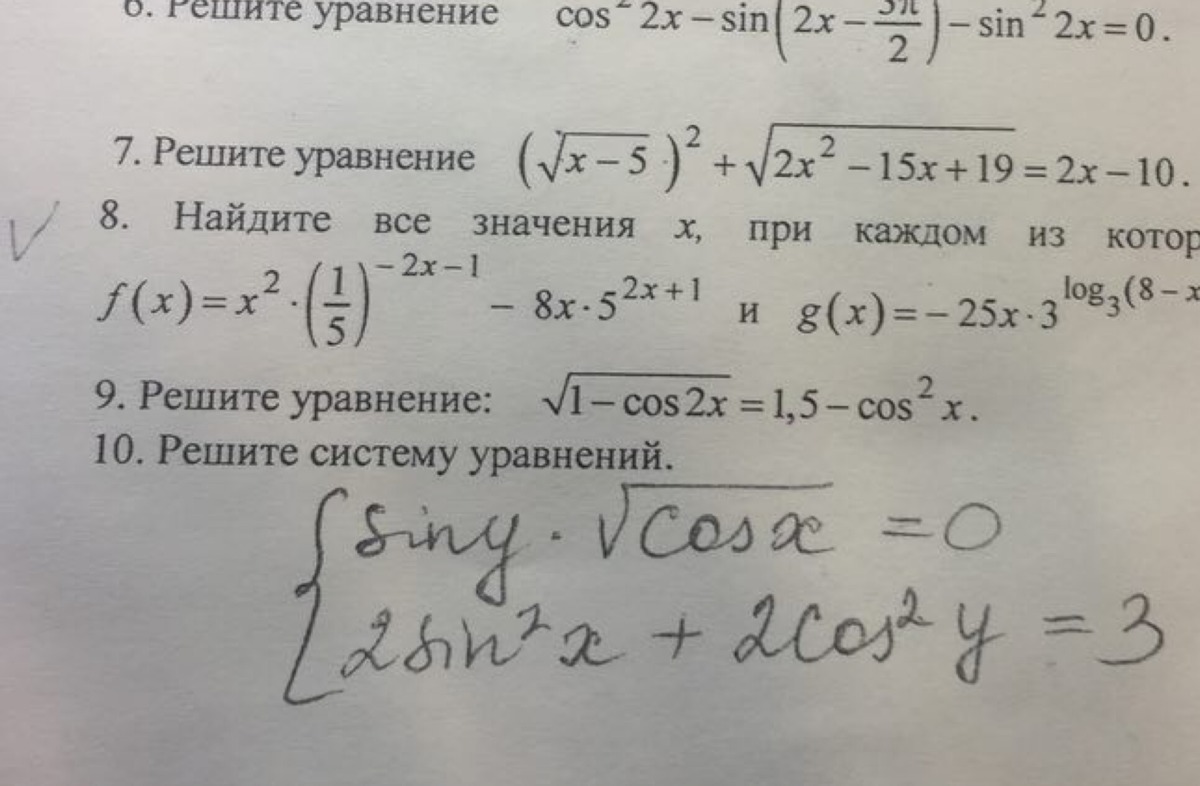 6. Решите уравнение cos² 2x – sin(2x – 3π/2) – sin² 2x = 0.
7. Решите уравнение (√(x – 5))² + √(2x² – 15x + 19) = 2x – 10.
8. Найдите все значения x, при каждом из котор
f(x) = x² · (1/5)^(–2x–1) – 8x · 5^(2x+1) и g(x) = – 25x · 3^(log₃(8 – x
9. Решите уравнение: √(1 – cos 2x) = 1,5 – cos² x.
10. Решите систему уравнений.
{ sin y · √(cos x) = 0
2 sin² x + 2 cos² y = 3